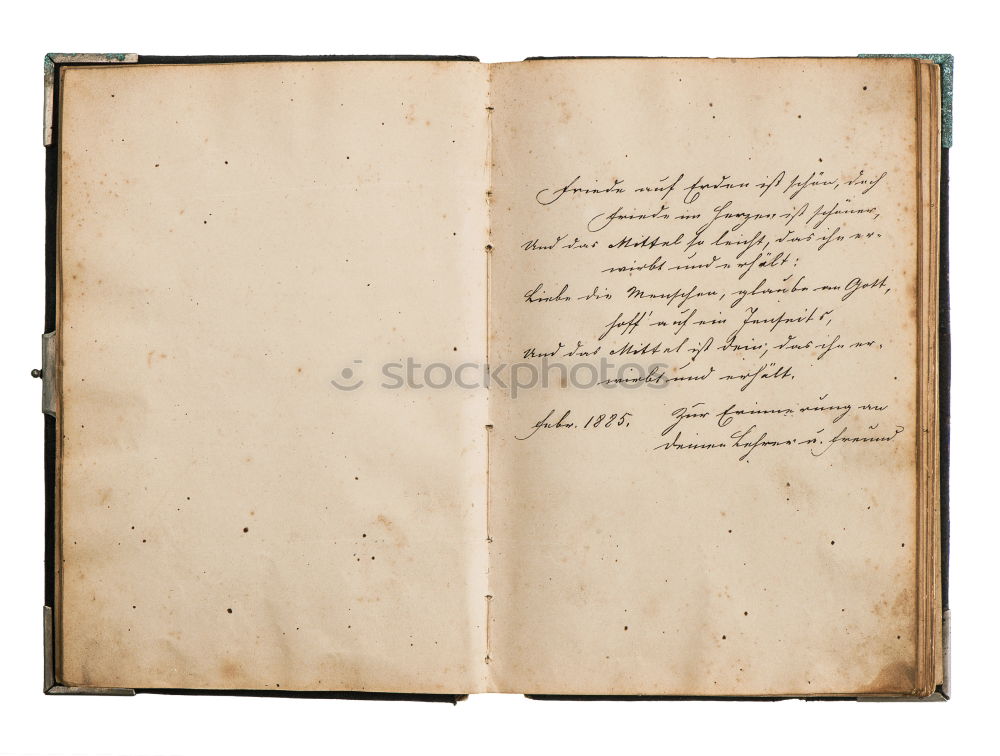 Friede auf Erden ist schön, doch
Friede im Herzen ist schöner,
Und das Mittel so leicht, das ihn er-
wirbt und erhält:
Liebe die Menschen, glaube an Gott,
hoff' auf ein Jenseits,
Und das Mittel ist dein, das ihn er-
wirbt und erhält.
Febr. 1885. Zur Erinnerung an
deinen Lehrer u. Freund
stockphotos